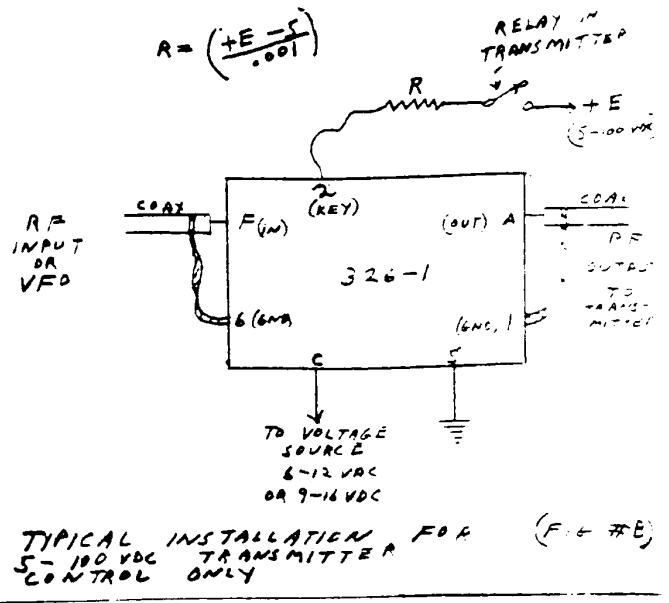 R = (+E - 5 / .001)
RELAY IN
TRANSMITTER
R
+ E
(5-100 VDC)
COAX
RF
INPUT
OR
VFO
F(IN)
2
(KEY)
(OUT) A
COAX
RF
OUTPUT
TO
TRANS-
MITTER
326-1
6 (GND)
(GND) 1
C
5
TO VOLTAGE
SOURCE
6-12 VAC
OR 9-16 VDC
TYPICAL INSTALLATION FOR (FIG #B)
5-100 VDC TRANSMITTER
CONTROL ONLY